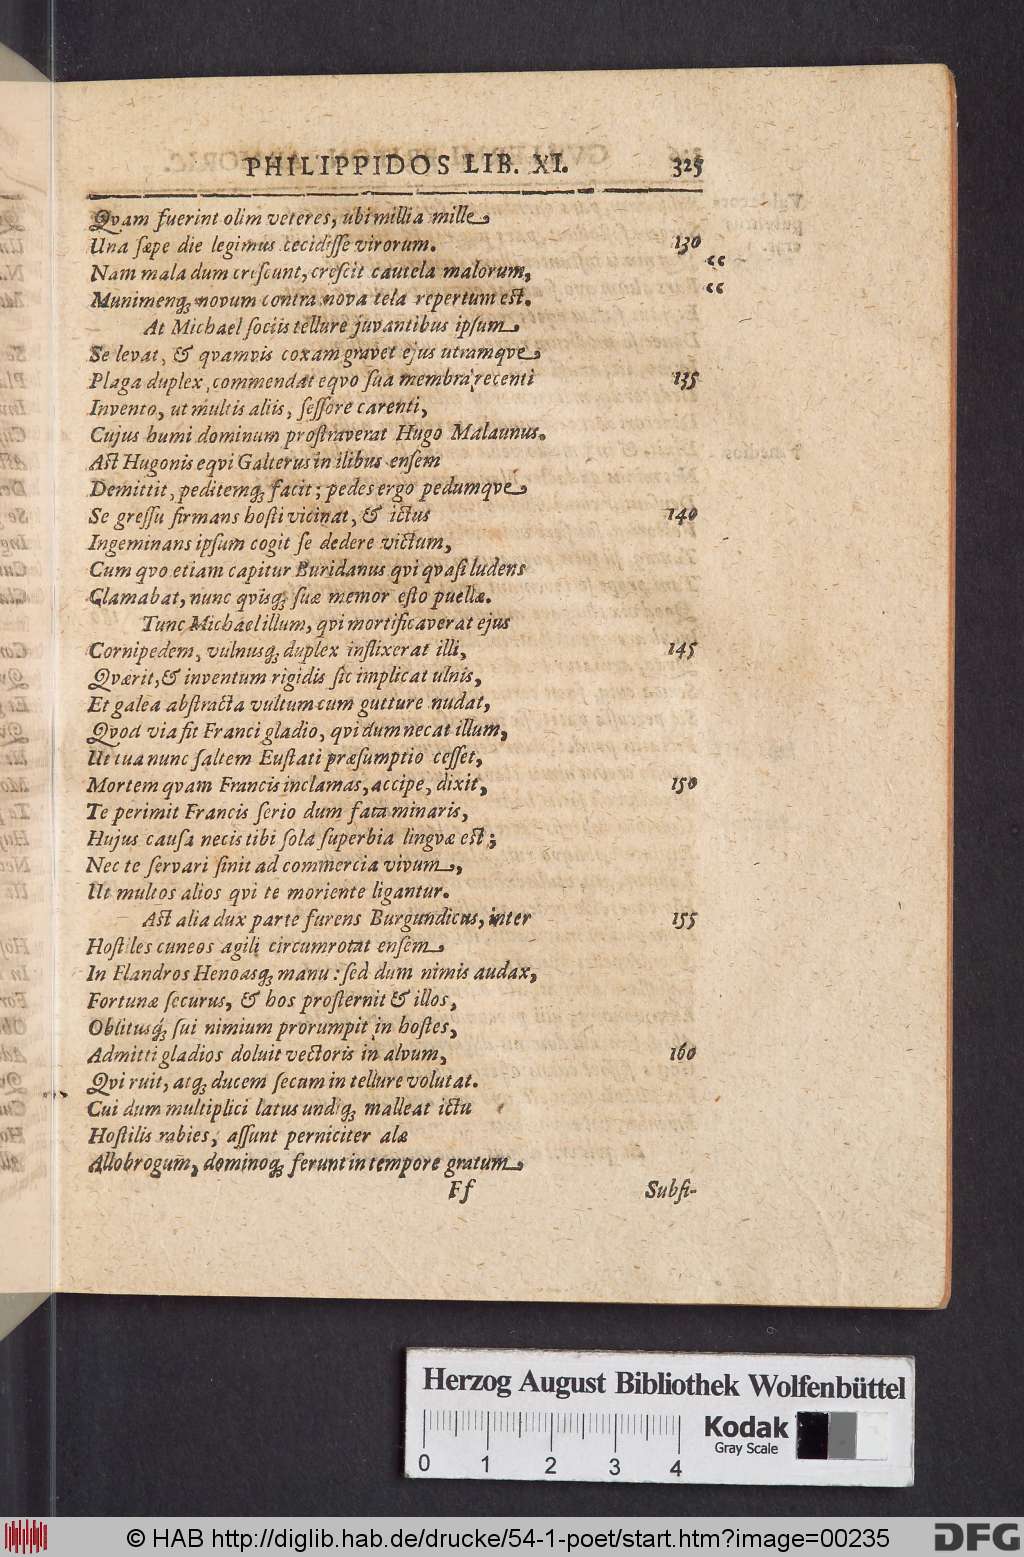 PHILIPPIDOS LIB. XI. 325
Qvam fuerint olim veteres, ubi millia mille
Una sæpe die legimus cecidisse virorum. 130
Nam mala dum crescunt, crescit cautela malorum, “
Munimenq; novum contra nova tela repertum est. “
At Michael sociis tellure juvantibus ipsum
Se levat, & qvamvis coxam gravet ejus utramqve
Plaga duplex, commendat eqvo sua membra recenti 135
Invento, ut multis aliis, sessore carenti,
Cujus humi dominum prostraverat Hugo Malaunus.
Ast Hugonis eqvi Galterus in ilibus ensem
Demittit, peditemq; facit; pedes ergo pedumqve
Se gressu firmans hosti vicinat, & ictus 140
Ingeminans ipsum cogit se dedere victum,
Cum qvo etiam capitur Buridanus qvi qvasi ludens
Clamabat, nunc qvisq; suæ memor esto puellæ.
Tunc Michael illum, qvi mortificaverat ejus
Cornipedem, vulnusq; duplex inflixerat illi, 145
Qværit, & inventum rigidis sic implicat ulnis,
Et galea abstracta vultum cum gutture nudat,
Qvod via fit Franci gladio, qvi dum necat illum,
Ut tua nunc saltem Eustati præsumptio cesset,
Mortem qvam Francis inclamas, accipe, dixit, 150
Te perimit Francis serio dum fata minaris,
Hujus causa necis tibi sola superbia lingvæ est;
Nec te servari sinit ad commercia vivum,
Ut multos alios qvi te moriente ligantur.
Ast alia dux parte furens Burgundicus, inter 155
Hostiles cuneos agili circumrotat ensem
In Flandros Henoasq; manu: sed dum nimis audax,
Fortunæ securus, & hos prosternit & illos,
Oblitusq; sui nimium prorumpit in hostes,
Admitti gladios doluit vectoris in alvum, 160
Qvi ruit, atq; ducem secum in tellure volutat.
Cui dum multiplici latus undiq; malleat ictu
Hostilis rabies, assunt perniciter alæ
Allobrogum, dominoq; ferunt in tempore gratum
Ff Subsi-
Herzog August Bibliothek Wolfenbüttel
0 1 2 3 4
Kodak
Gray Scale
© HAB http://diglib.hab.de/drucke/54-1-poet/start.htm?image=00235
DFG